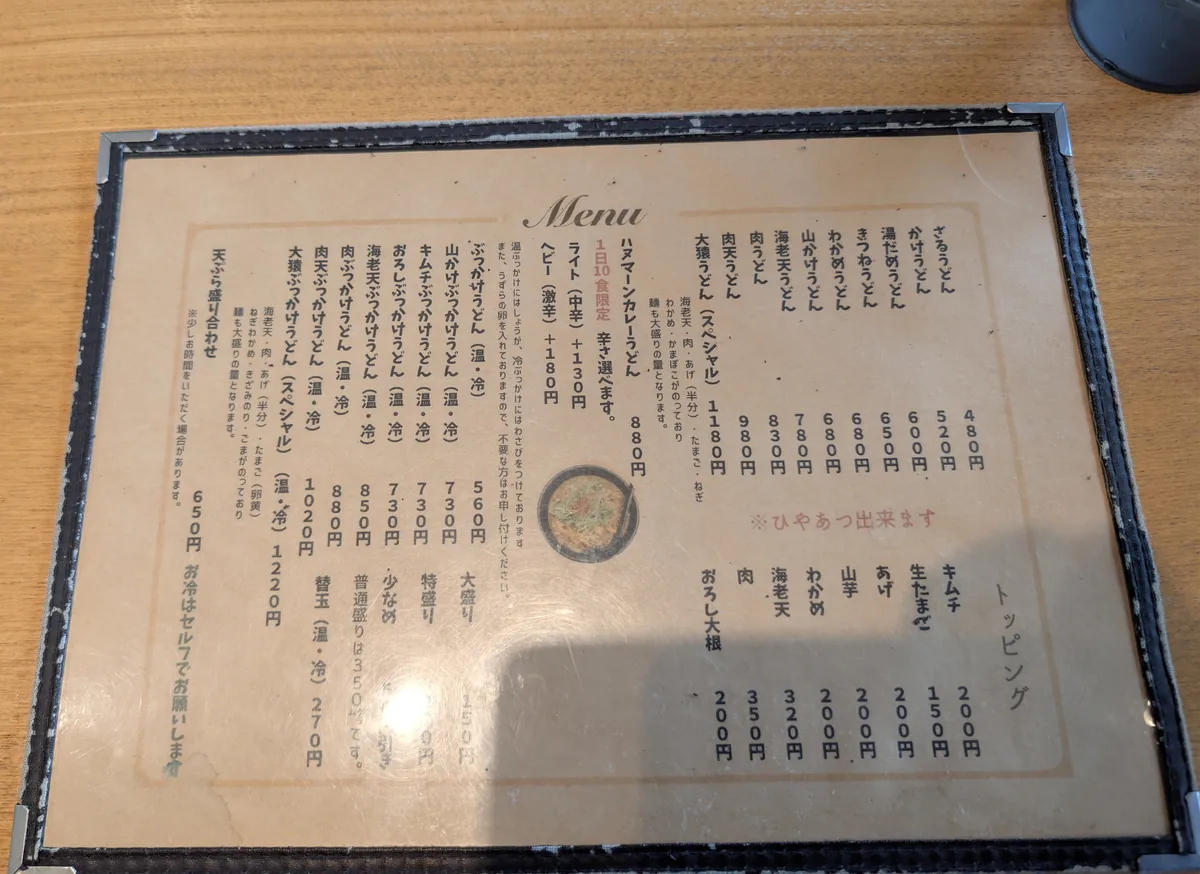 Menu
ざるうどん 480円
かけうどん 520円
湯だめうどん 600円
きつねうどん 650円
わかめうどん 680円
山かけうどん 680円
海老天うどん 780円
肉うどん 830円
肉天うどん 980円
大猿うどん（スペシャル） 1180円
海老天・肉・あげ（半分）・たまご・ねぎ
わかめ・かまぼこがのっており
麺も大盛りの量となります。
ハヌマーンカレーうどん 880円
1日10食限定 辛さ選べます。
ライト（中辛）＋130円
ヘビー（激辛）＋180円
※ひやあつ出来ます
トッピング
キムチ 200円
生たまご 150円
あげ 200円
山芋 200円
わかめ 200円
海老天 320円
肉 350円
おろし大根 200円
温ぶっかけにはしょうが、冷ぶっかけにはわさびをつけております
また、うずらの卵を入れておりますので、不要な方はお申し付けください。
ぶっかけうどん（温・冷） 560円
山かけぶっかけうどん（温・冷） 730円
キムチぶっかけうどん（温・冷） 730円
おろしぶっかけうどん（温・冷） 730円
海老天ぶっかけうどん（温・冷） 850円
肉ぶっかけうどん（温・冷） 880円
肉天ぶっかけうどん（温・冷） 1020円
大猿ぶっかけうどん（スペシャル）（温・冷） 1220円
海老天・肉・あげ（半分）・たまご（卵黄）
ねぎわかめ・きざみのり・ごまがのっており
麺も大盛りの量となります。
天ぷら盛り合わせ 650円
※少しお時間をいただく場合があります。
大盛り 150円
特盛り
少なめ 引き
普通盛りは350gです。
替玉（温・冷）270円
お冷はセルフでお願いします